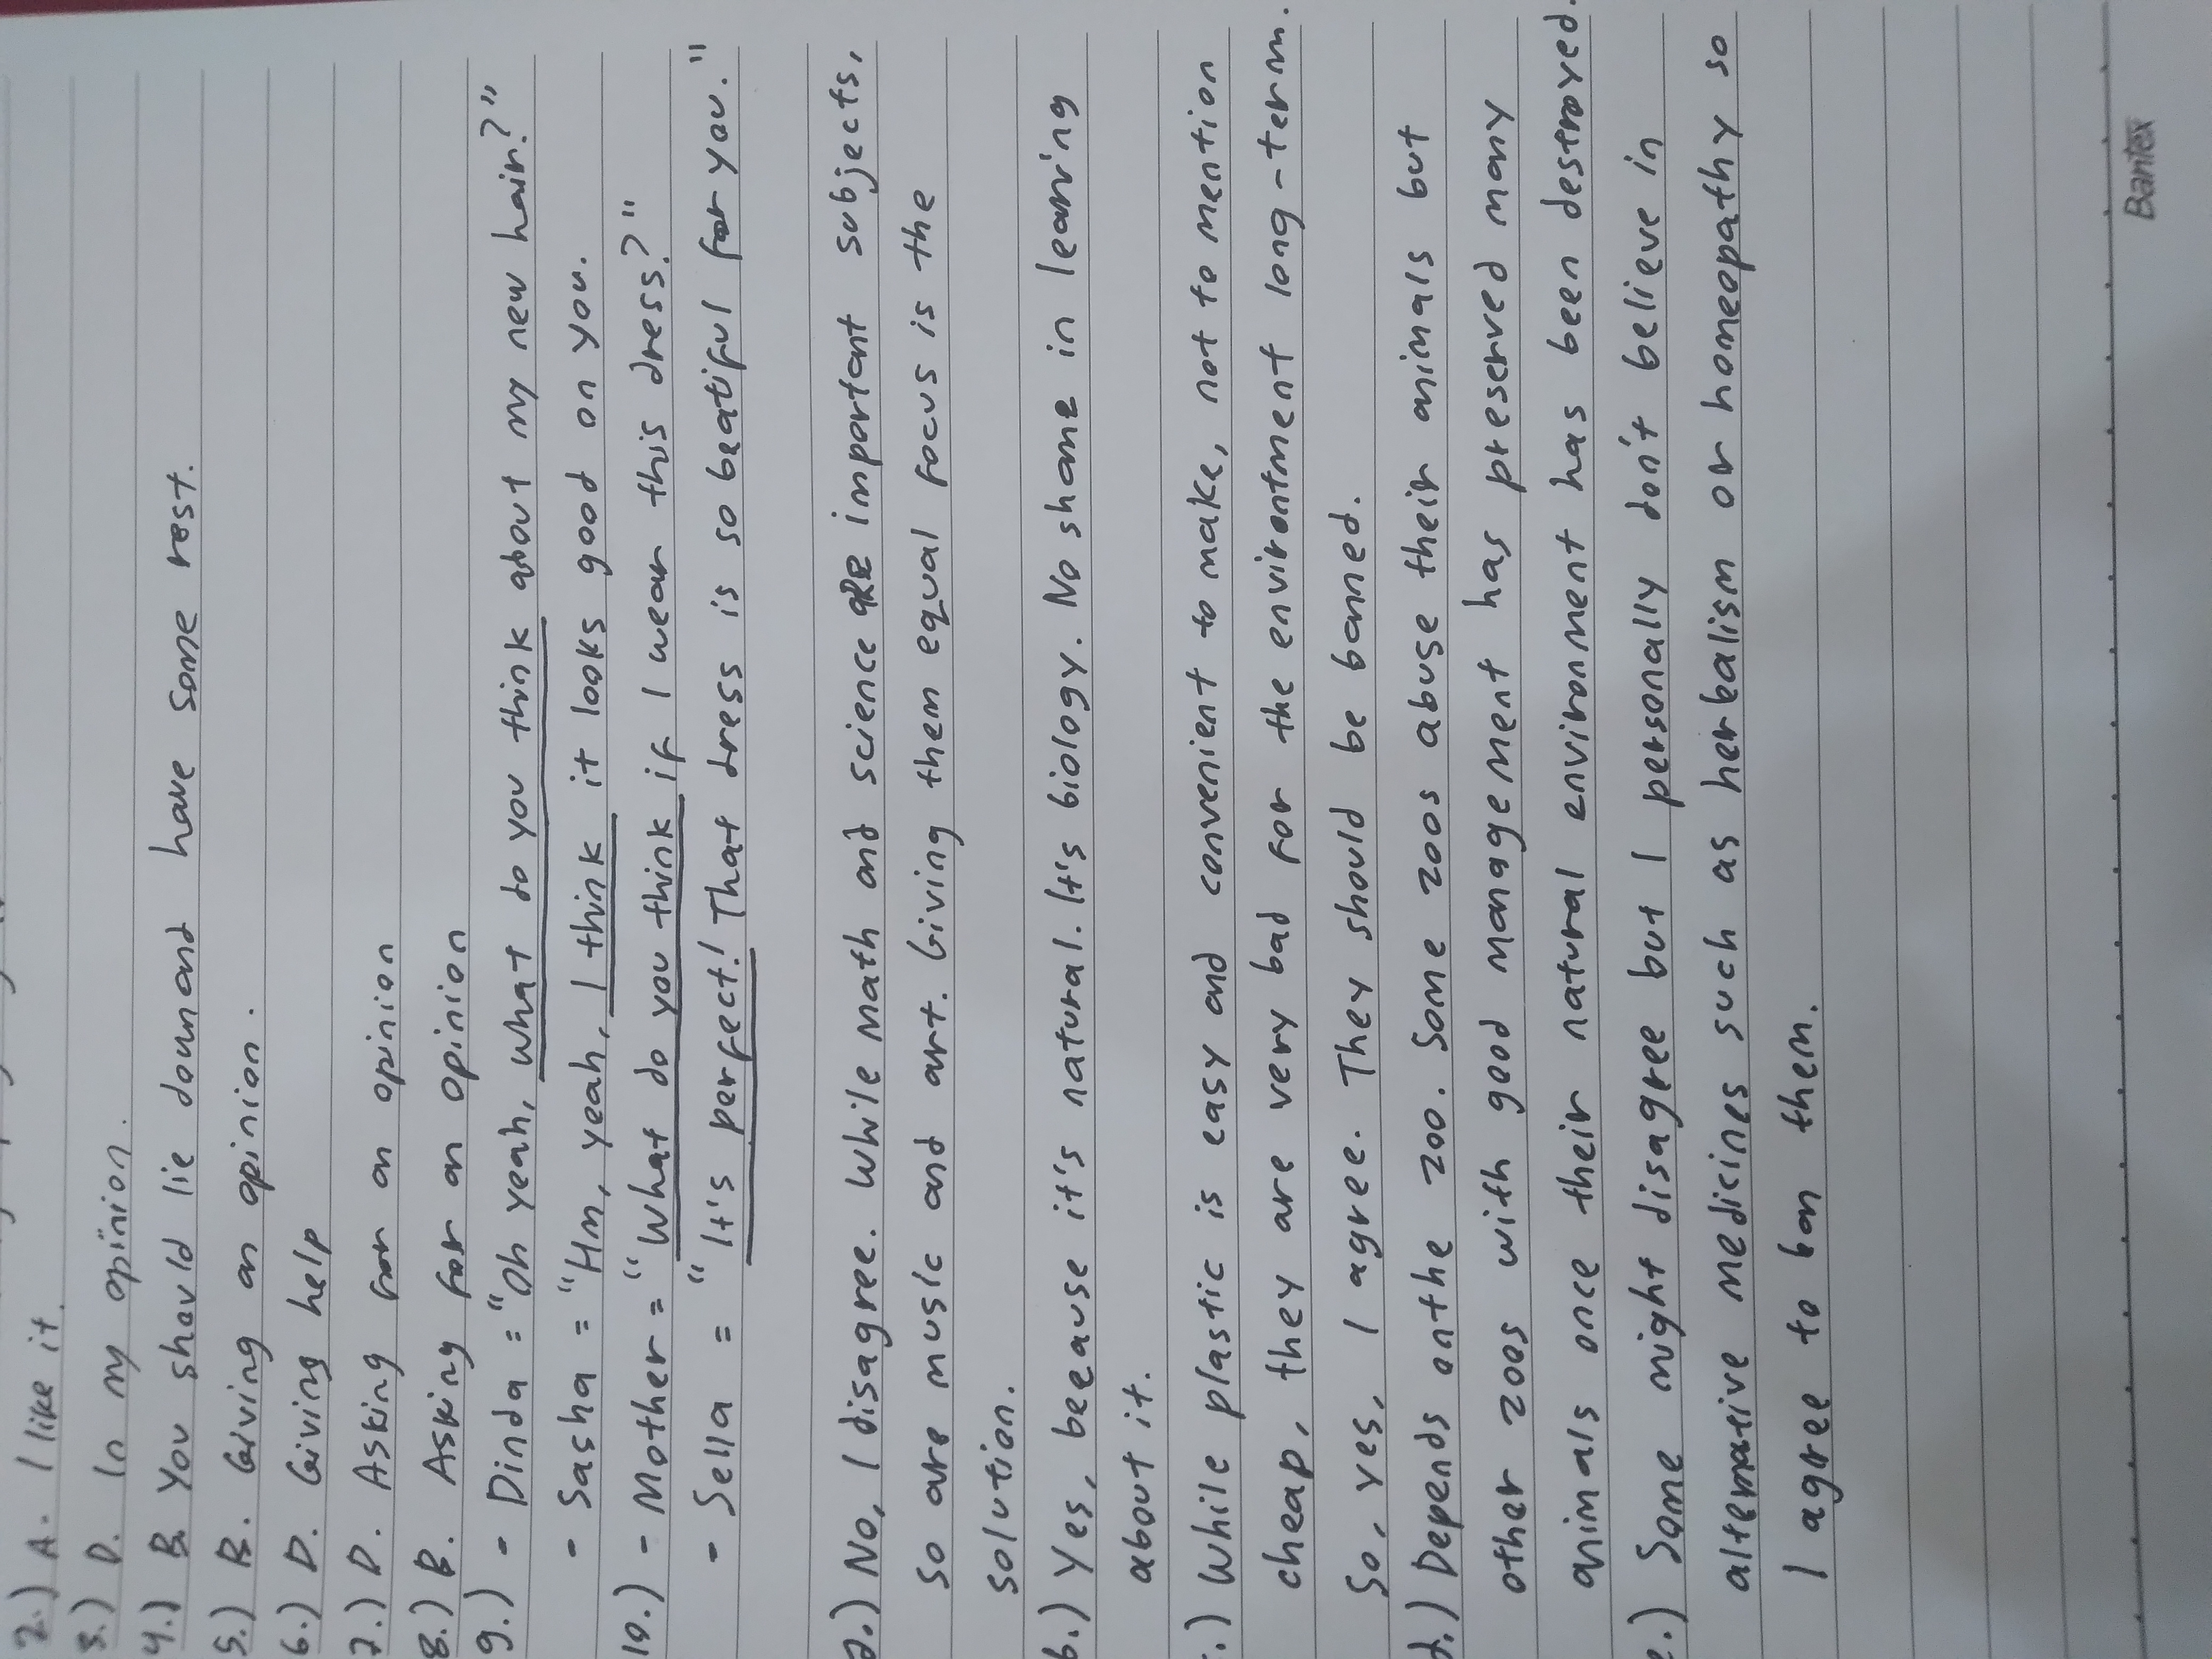 2.) A. I like it.
3.) D. In my opinion.
4.) B. You should lie down and have some rest.
5.) B. Giving an opinion.
6.) D. Giving help
7.) D. Asking for an opinion
8.) B. Asking for an opinion
9.) - Dinda = "Oh yeah, what do you think about my new hair?"
- Sasha = "Hm, yeah, I think it looks good on you.
10.) - Mother = "What do you think if I wear this dress?"
- Sella = "It's perfect! That dress is so beatiful for you."
a.) No, I disagree. While math and science are important subjects,
so are music and art. Giving them equal focus is the
solution.
b.) Yes, because it's natural. It's biology. No shame in learning
about it.
.) While plastic is easy and convenient to make, not to mention
cheap, they are very bad for the environtment long-term.
So, yes, I agree. They should be banned.
d.) Depends on the zoo. Some zoos abuse their animals but
other zoos with good management has preserved many
animals once their natural environment has been destroyed.
e.) Some might disagree but I personally don't believe in
alternative medicines such as herbalism or homeopathy so
I agree to ban them.
Bantex